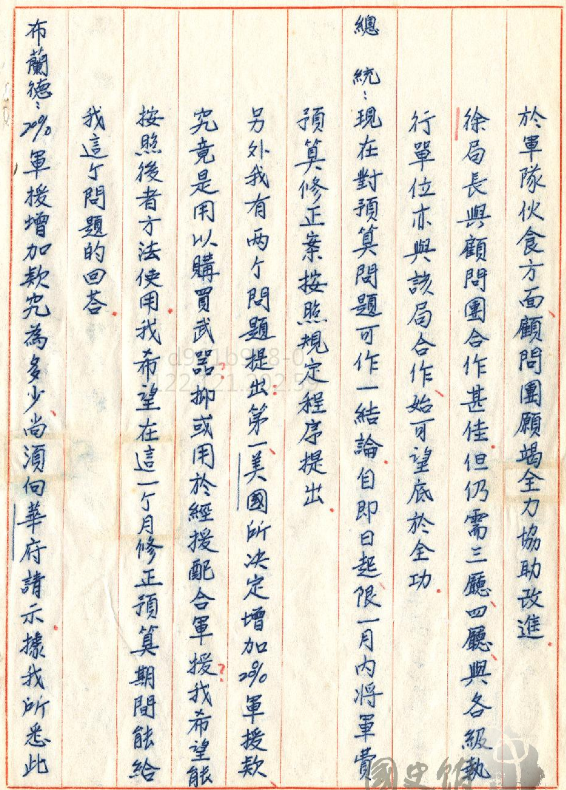 於軍隊伙食方面顧問團願竭全力協助改進
徐局長與顧問團合作甚佳但仍需三廳四廳與各級執
行單位亦與該局合作始可望底於全功
總 統：現在對預算問題可作一結論自即日起限一月內將軍費
預算修正案按照規定程序提出
另外我有两个問題提出第一美國所决定增加20%軍援款
究竟是用以購買武器抑或用於經援配合軍援？我希望能
按照後者方法使用我希望在這一个月修正預算期間能給
我這个問題的回答
布蘭德：20%軍援增加款究為多少尚須向華府請示據我所悉此
國史館